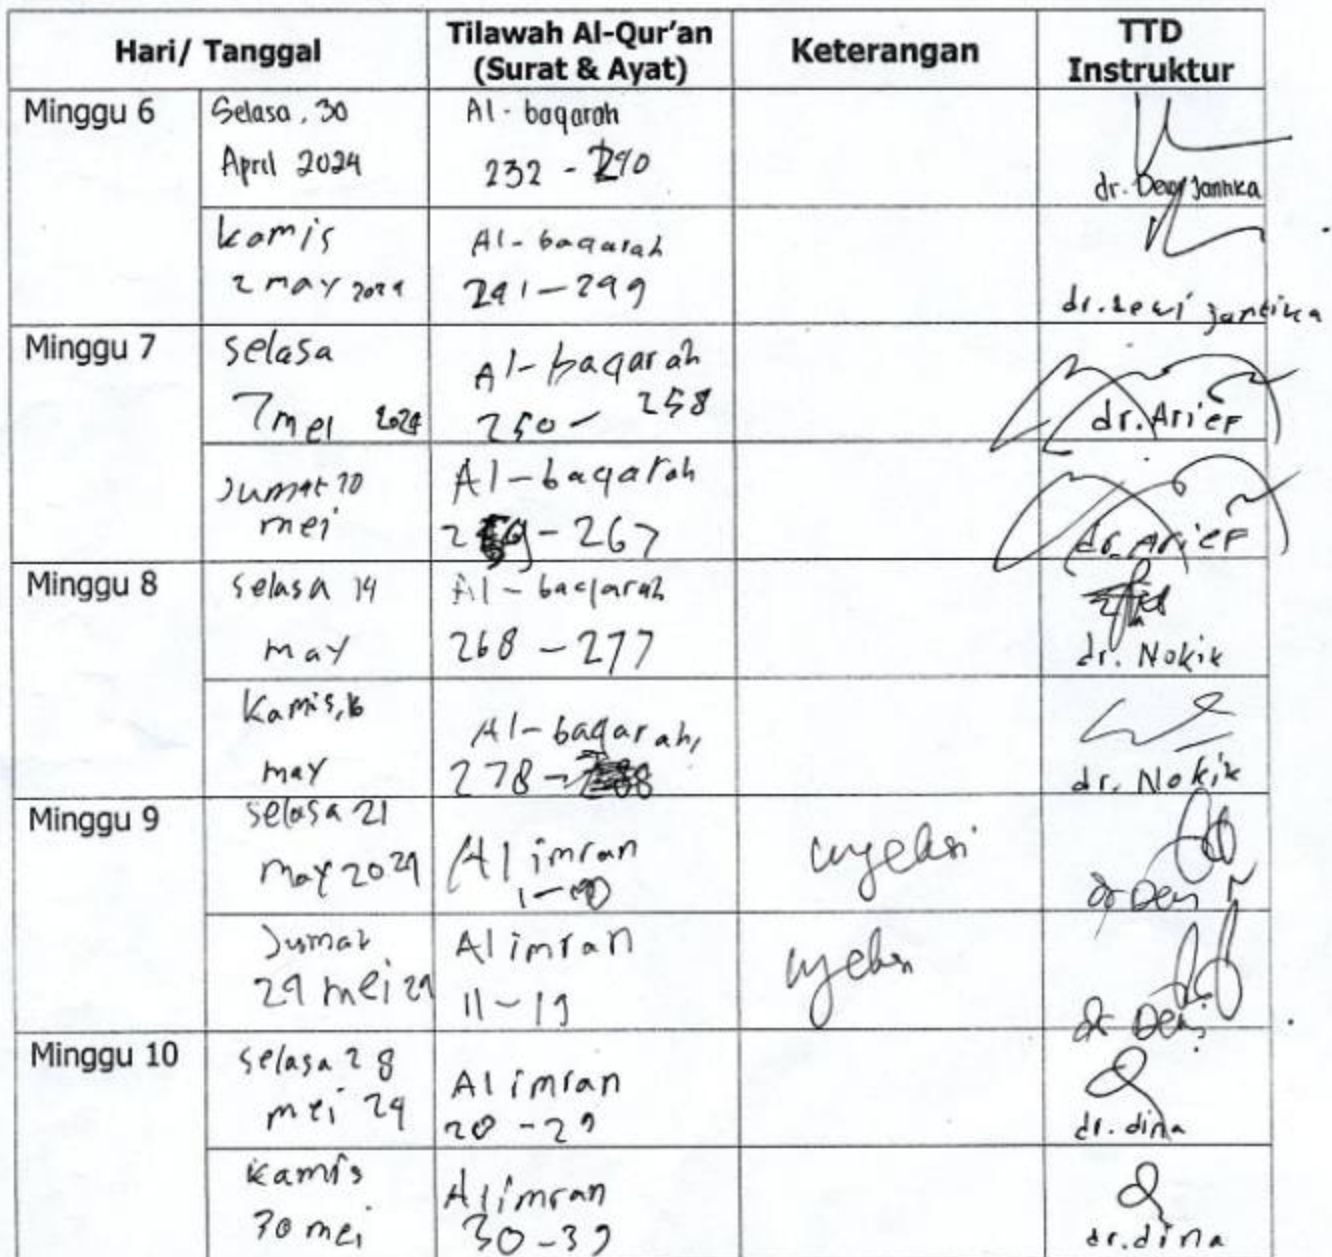 Hari/ Tanggal
Tilawah Al-Qur'an
(Surat & Ayat)
Keterangan
TTD
Instruktur
Minggu 6
Selasa, 30
April 2024
Al-baqarah
232 - 240
dr. Dewi Jantika
kamis
2 may 2024
Al-baqarah
241-249
dr. dewi jantika
Minggu 7
selasa
7 mei 2024
Al-baqarah
250- 258
dr. Arief
Jumat 10
mei
Al-baqarah
259-267
dr. Arief
Minggu 8
selasa 14
may
Al-baqarah
268-277
dr. Nokik
Kamis, 16
may
Al-baqarah,
278-
dr. Nokik
Minggu 9
selasa 21
may 2024
Al imran
1-10
dr Deni
Jumat
24 mei 24
Al imran
11-19
dr Deni
Minggu 10
selasa 28
mei 24
Al imran
20-29
dr. dina
kamis
30 mei
Al imran
30-39
dr. dina